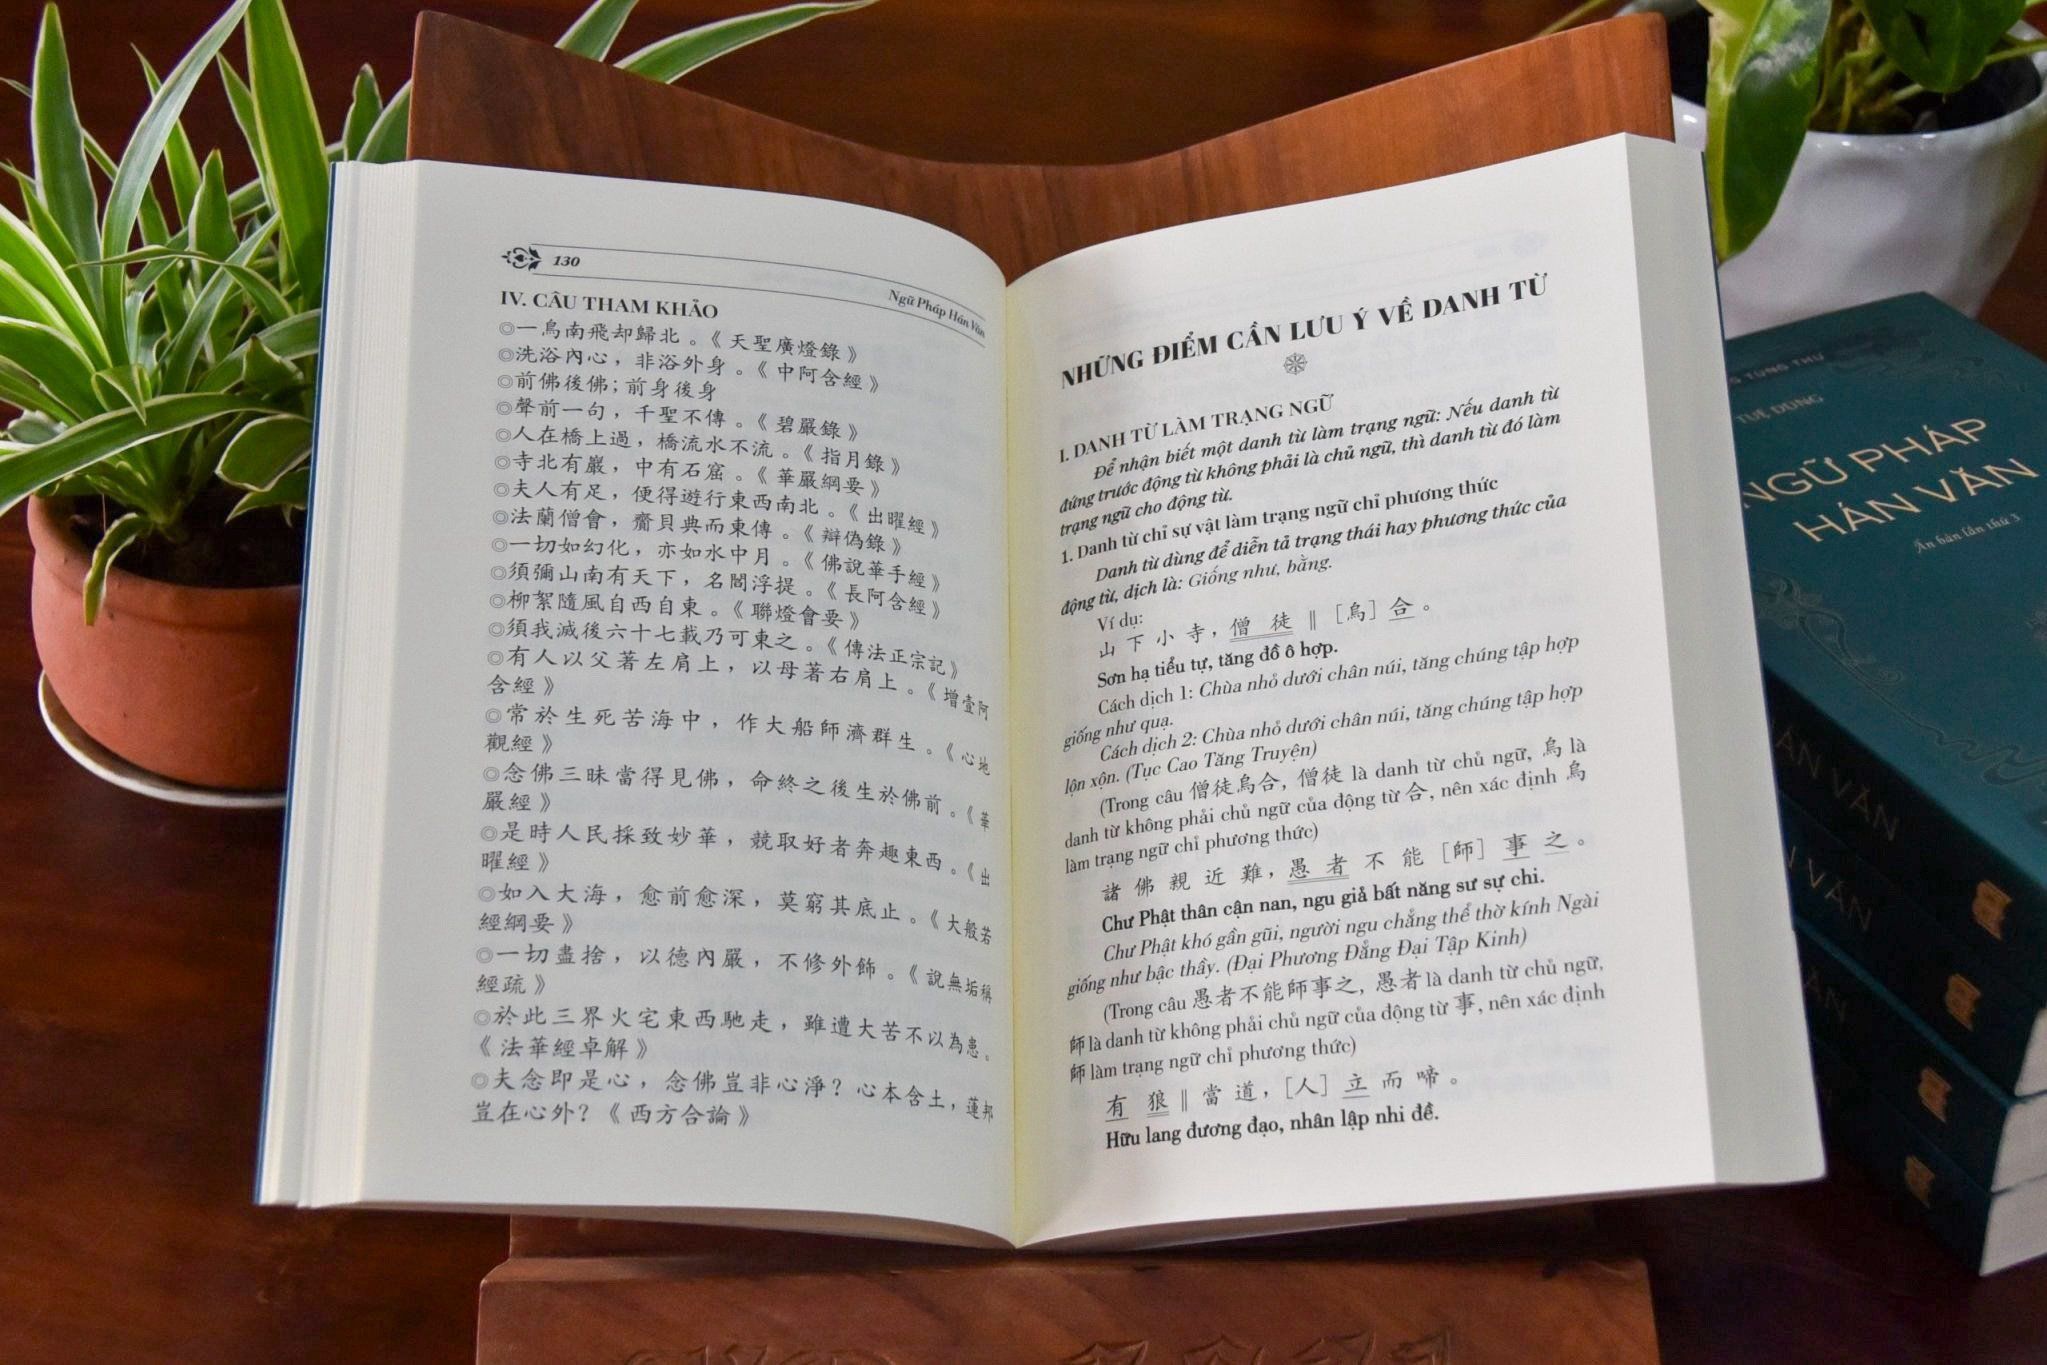 130
Ngữ Pháp Hán Văn
IV. CÂU THAM KHẢO
◎一鳥南飛却歸北。《天聖廣燈錄》
◎洗浴內心，非浴外身。《中阿含經》
◎前佛後佛；前身後身
◎聲前一句，千聖不傳。《碧嚴錄》
◎人在橋上過，橋流水不流。《指月錄》
◎寺北有巖，中有石窟。《華嚴綱要》
◎夫人有足，便得遊行東西南北。《出曜經》
◎法蘭僧會，齎貝典而東傳。《辯偽錄》
◎一切如幻化，亦如水中月。《佛說華手經》
◎須彌山南有天下，名閻浮提。《長阿含經》
◎柳絮隨風自西自東。《聯燈會要》
◎須我滅後六十七載乃可東之。《傳法正宗記》
◎有人以父著左肩上，以母著右肩上。《增壹阿
含經》
◎常於生死苦海中，作大船師濟群生。《心地
觀經》
◎念佛三昧當得見佛，命終之後生於佛前。《華
嚴經》
◎是時人民採致妙華，競取好者奔趣東西。《出
曜經》
◎如入大海，愈前愈深，莫窮其底止。《大般若
經綱要》
◎一切盡捨，以德內嚴，不修外飾。《說無垢稱
經疏》
◎於此三界火宅東西馳走，雖遭大苦不以為患。
《法華經卓解》
◎夫念即是心，念佛豈非心淨？心本含土，蓮邦
豈在心外？《西方合論》
NHỮNG ĐIỂM CẦN LƯU Ý VỀ DANH TỪ
I. DANH TỪ LÀM TRẠNG NGỮ
Để nhận biết một danh từ làm trạng ngữ: Nếu danh từ
đứng trước động từ không phải là chủ ngữ, thì danh từ đó làm
trạng ngữ cho động từ.
1. Danh từ chỉ sự vật làm trạng ngữ chỉ phương thức
Danh từ dùng để diễn tả trạng thái hay phương thức của
động từ, dịch là: Giống như, bằng.
Ví dụ:
山下小寺，僧徒‖［烏］合。
Sơn hạ tiểu tự, tăng đồ ô hợp.
Cách dịch 1: Chùa nhỏ dưới chân núi, tăng chúng tập hợp
giống như quạ.
Cách dịch 2: Chùa nhỏ dưới chân núi, tăng chúng tập hợp
lộn xộn. (Tục Cao Tăng Truyện)
(Trong câu 僧徒烏合, 僧徒 là danh từ chủ ngữ, 烏 là
danh từ không phải chủ ngữ của động từ 合, nên xác định 烏
làm trạng ngữ chỉ phương thức)
諸佛親近難，愚者不能［師］事之。
Chư Phật thân cận nan, ngu giả bất năng sư sự chi.
Chư Phật khó gần gũi, người ngu chẳng thể thờ kính Ngài
giống như bậc thầy. (Đại Phương Đẳng Đại Tập Kinh)
(Trong câu 愚者不能師事之, 愚者 là danh từ chủ ngữ,
師 là danh từ không phải chủ ngữ của động từ 事, nên xác định
師 làm trạng ngữ chỉ phương thức)
有狼‖當道，［人］立而啼。
Hữu lang đương đạo, nhân lập nhi đề.
TÙNG THƯ
TUỆ DŨNG
NGỮ PHÁP
HÁN VĂN
Ấn bản lần thứ 3
HÁN VĂN
VĂN
VĂN